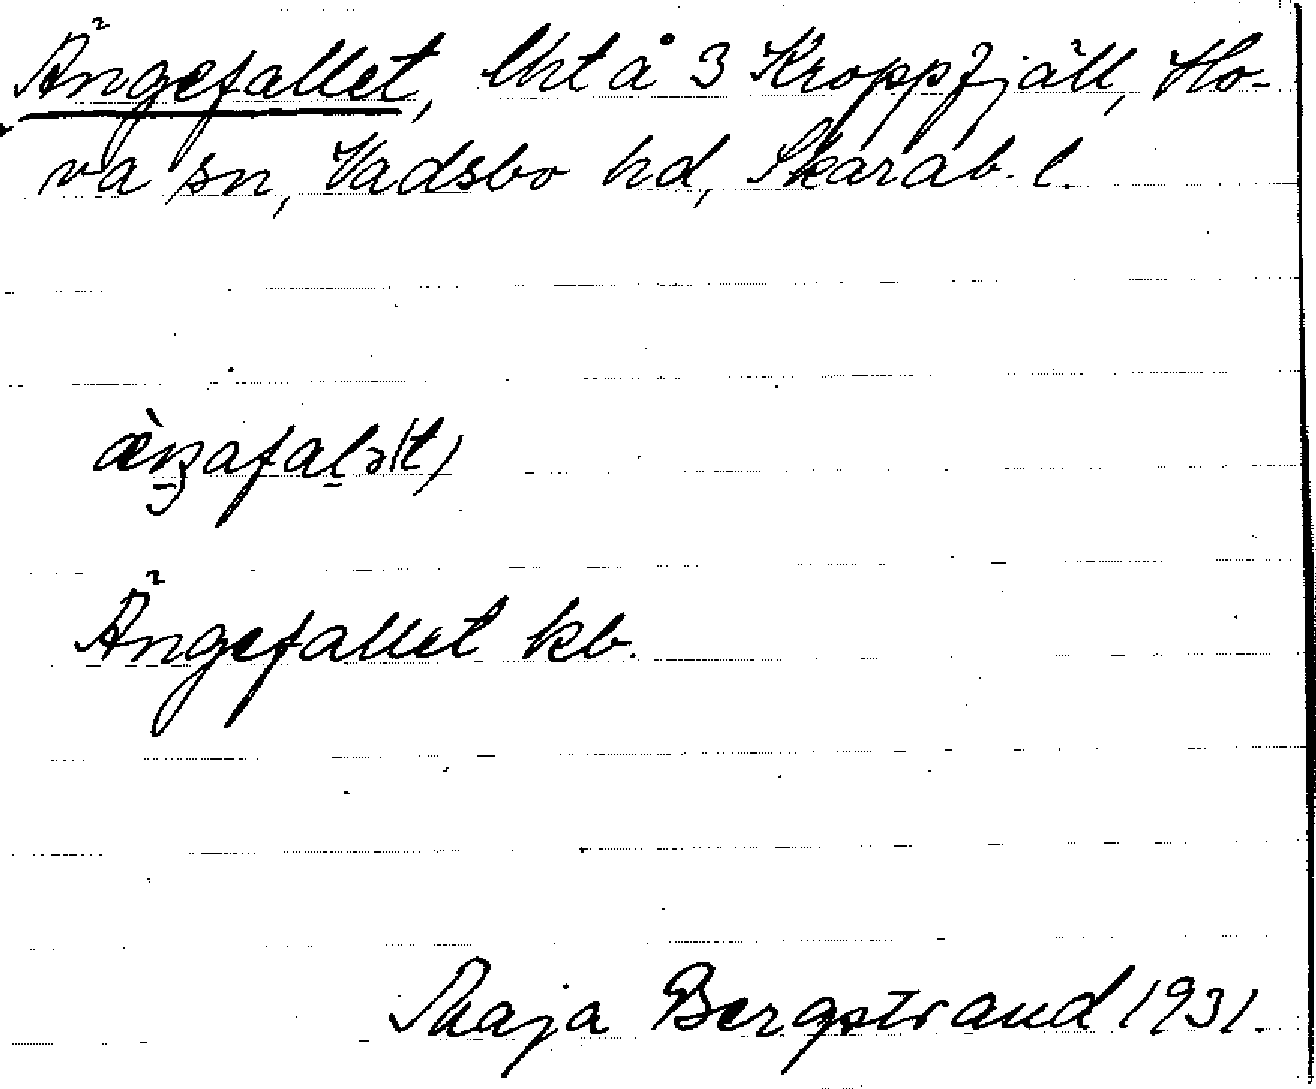 Ängefallet, lht å 3 Kroppfjäll, Ho-
va sn, Vadsbo hd, Skarab. l.
æ̀ŋafalət)
Ängefallet kb.
Maja Bergstrand 1931.